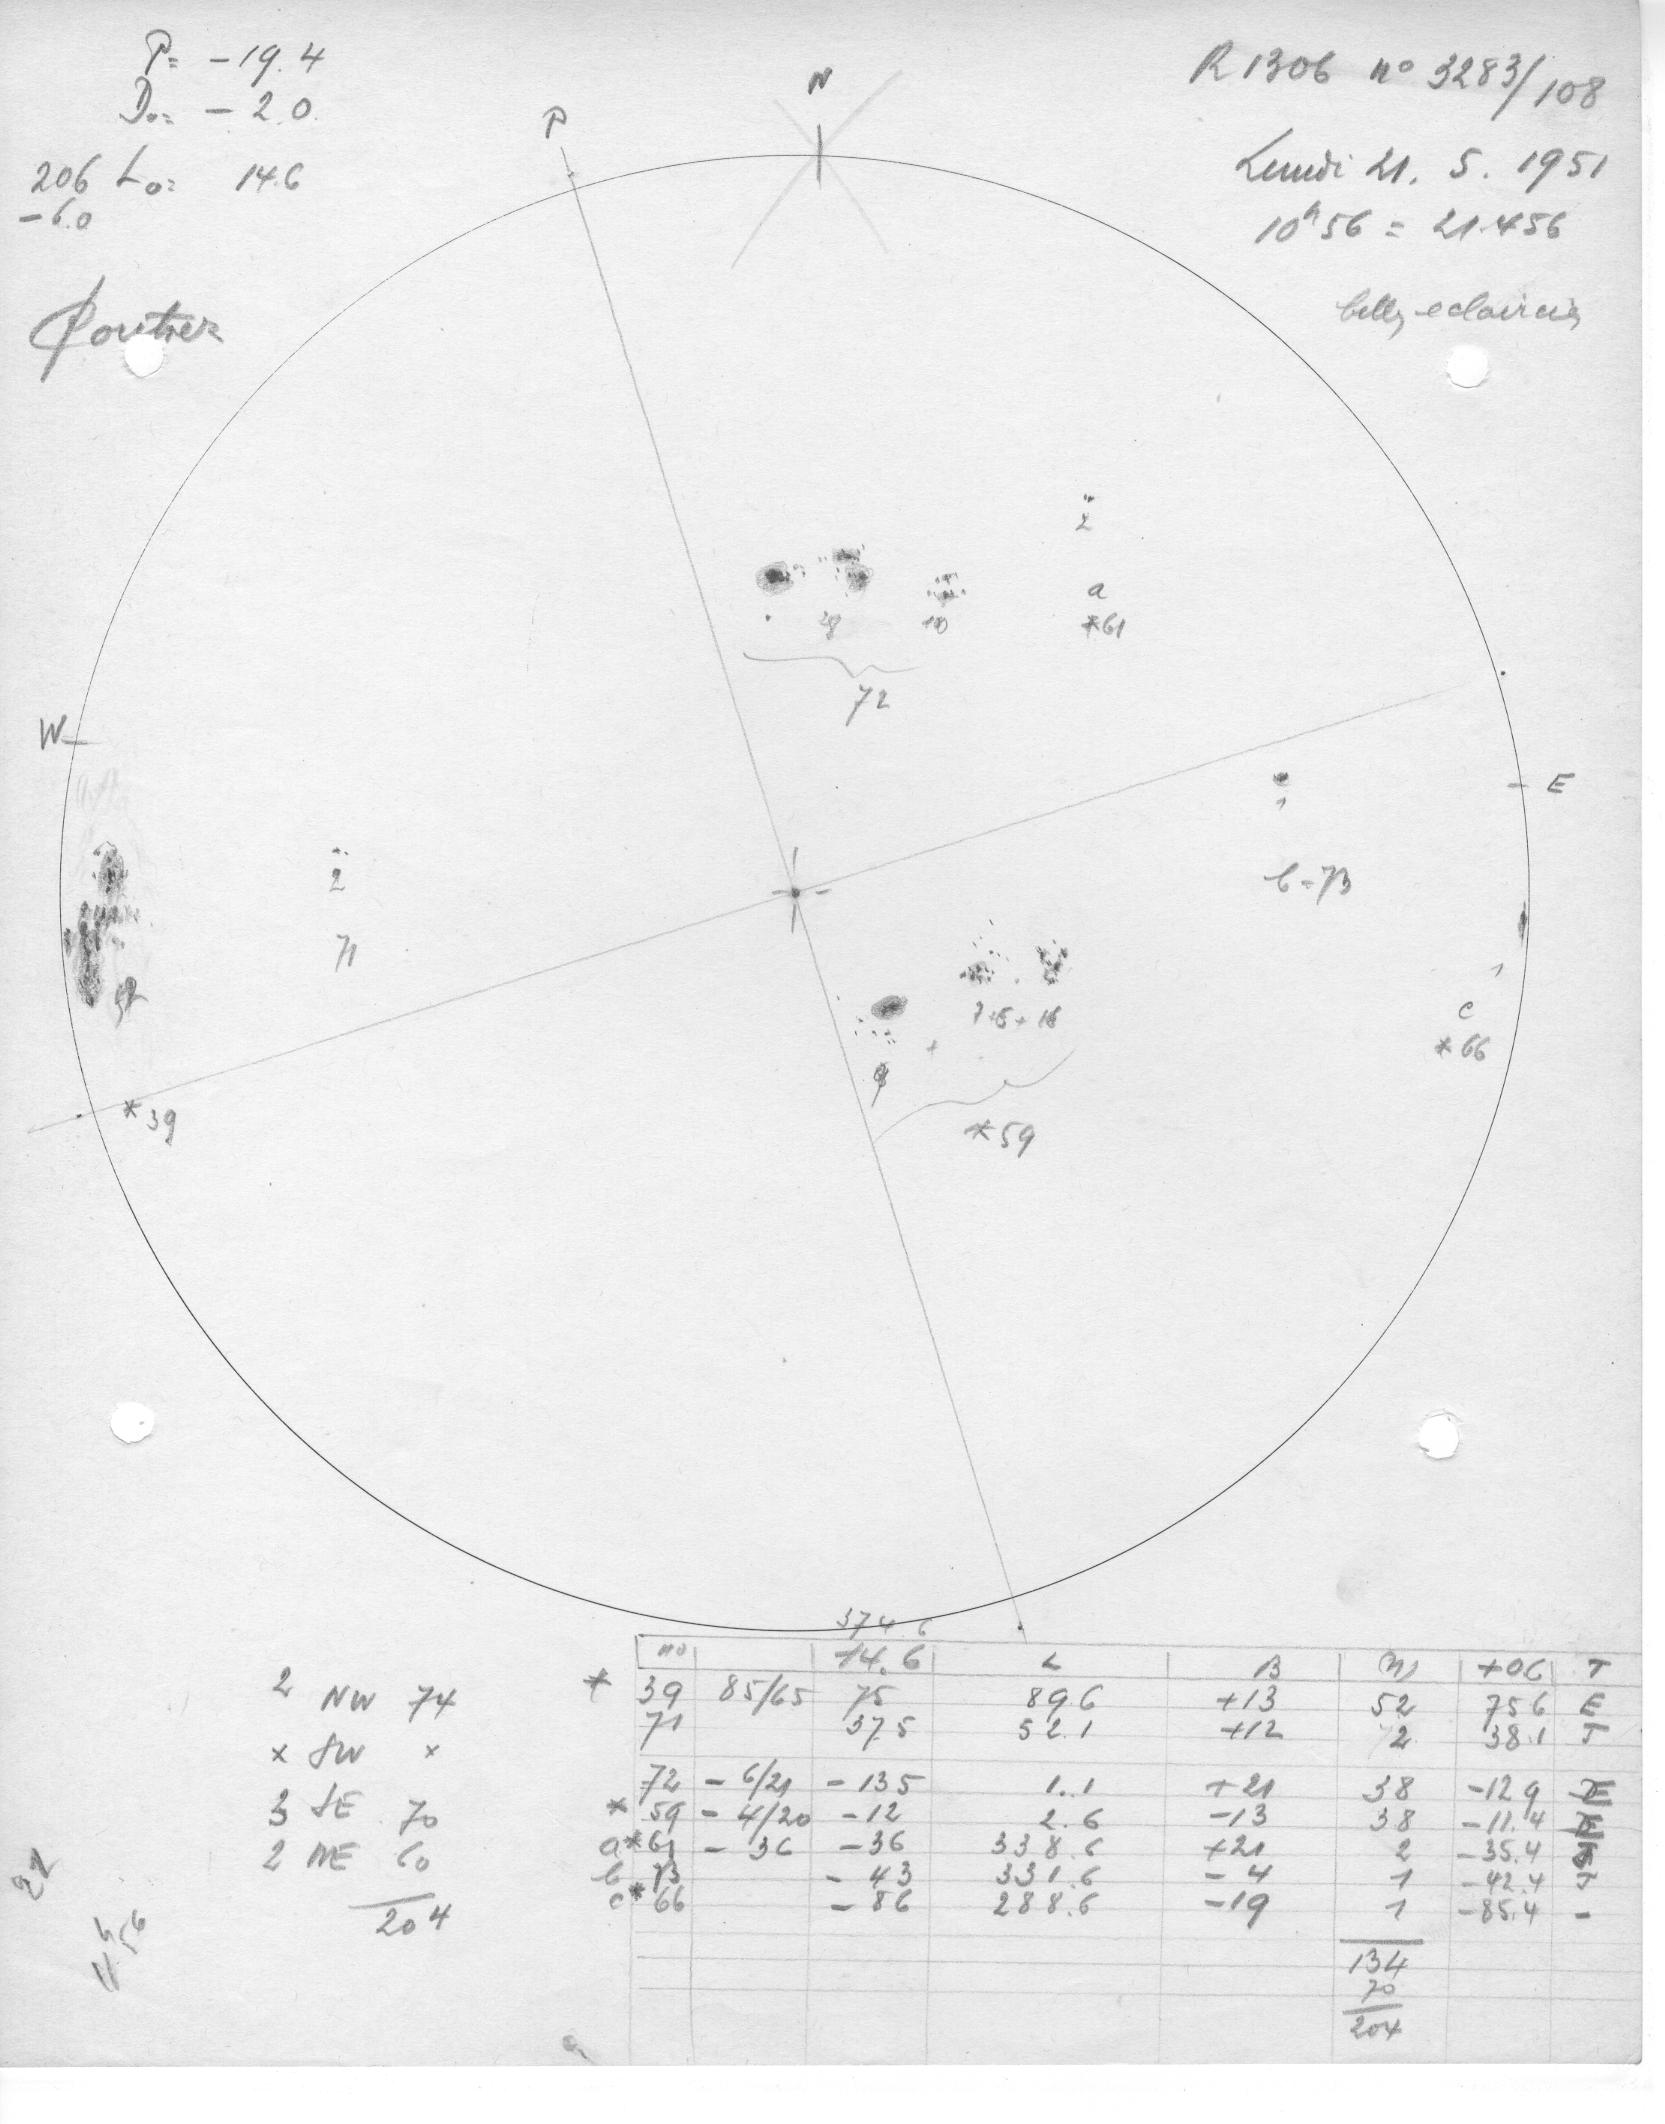 P= -19.4
D₀= -2.0
206 L₀= 14.6
-6.0
R 1306 n° 3283/108
Lundi 21. 5. 1951
10h56 = 21.456
N
P
2
a
*61
28
10
72
W
E
1
b=73
2
71
52
7+5+18
1
c
*66
*39
*59
374.6
no 14.6 L B +06 T
* 39 85/65 75 89.6 +13 52 75.6 E
71 37.5 52.1 +12 2 38.1 J
72 - 6/21 - 13.5 1.1 +21 38 -12.9
* 59 - 4/20 -12 2.6 -13 38 -11.4
a * 61 - 36 -36 338.6 +21 2 -35.4
b 73 - 43 331.6 - 4 1 -42.4 J
c * 66 - 86 288.6 -19 1 -85.4 -
134
70
204
2 NW 74
x SW x
3 SE 70
2 NE 60
204
22
11h56